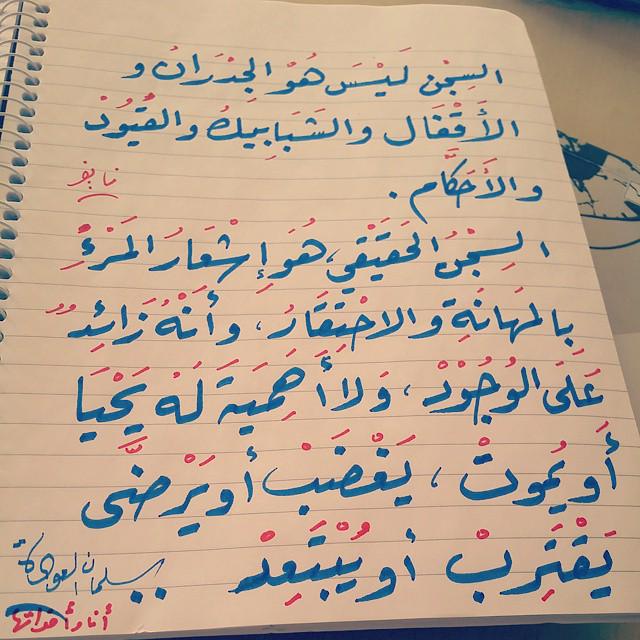 السِجْن لَيْسَ هُوْ الجْدَرَانُ و
الأَقْفَال والشَبَابِيكُ والقُيُودْ
والأَحَكَّام .
نايف
السِجْنُ الحَقِيْقِي، هُوَ إِشْعَارُ المَرْءِ
بِالمَهَانَةِ والاحْتِقَارُ، وأَنْهُ زَائِدٌ
عَلَى الوُجُوْدْ، وَلا أَهَمِيَة لَهْ يَحْيَا
أَو يُمُوتْ، يَغْضَبْ أو يَرْضَّى
يَقْتَرِبْ أو يُبْتَعِدْ
..
سلمان العودة
أنا وأخواتها